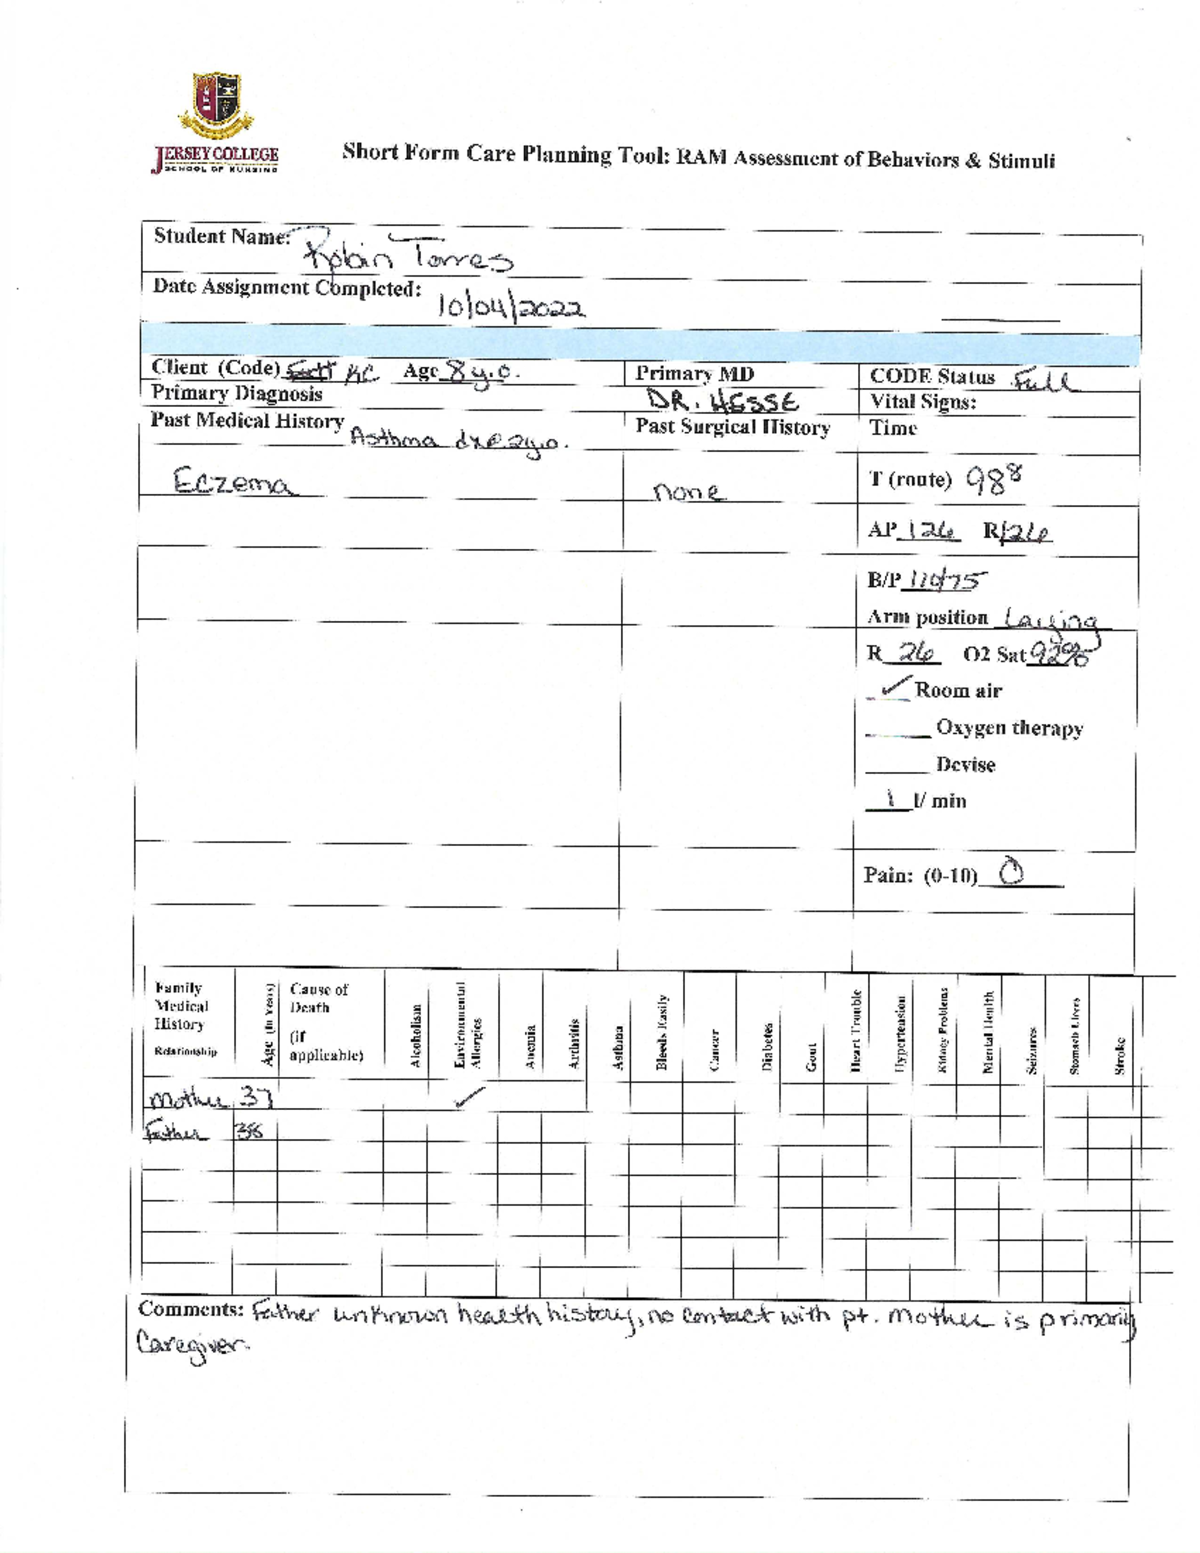 JERSEY COLLEGE
SCHOOL OF NURSING
Short Form Care Planning Tool: RAM Assessment of Behaviors & Stimuli
Student Name: Robin Torres
Date Assignment Completed: 10/04/2022
Client (Code) KC Age 8 y.o. Primary MD CODE Status Full
Primary Diagnosis DR. HESSE Vital Signs:
Past Medical History Asthma dx @ 2y.o. Past Surgical History Time
Eczema none T (route) 98⁸
AP 126 R 126
B/P 110/75
Arm position Laying
R 26 O2 Sat 92%
✓ Room air
Oxygen therapy
Devise
1 l/ min
Pain: (0-10) 0
Family Medical History Relationship Age (In Years) Cause of Death (if applicable) Alcoholism Environmental Allergies Anemia Arthritis Asthma Bleeds Easily Cancer Diabetes Gout Heart Trouble Hypertension Kidney Problems Mental Health Seizures Stomach Ulcers Stroke
Mother 37 ✓
Father 38
Comments: Father unknown health history, no contact with pt. Mother is primary
Caregiver.